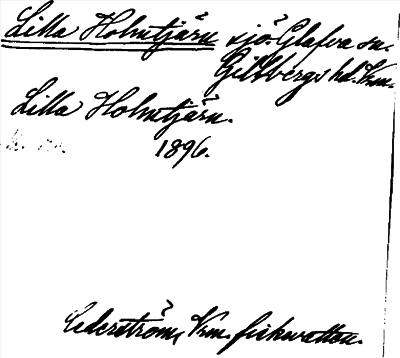 Lilla Holmtjärn sjö Glafva sn.
Gillbergs hd. Vrm.
Lilla Holmtjärn.
1896.
Cederström, Vrm. fiskevatten.